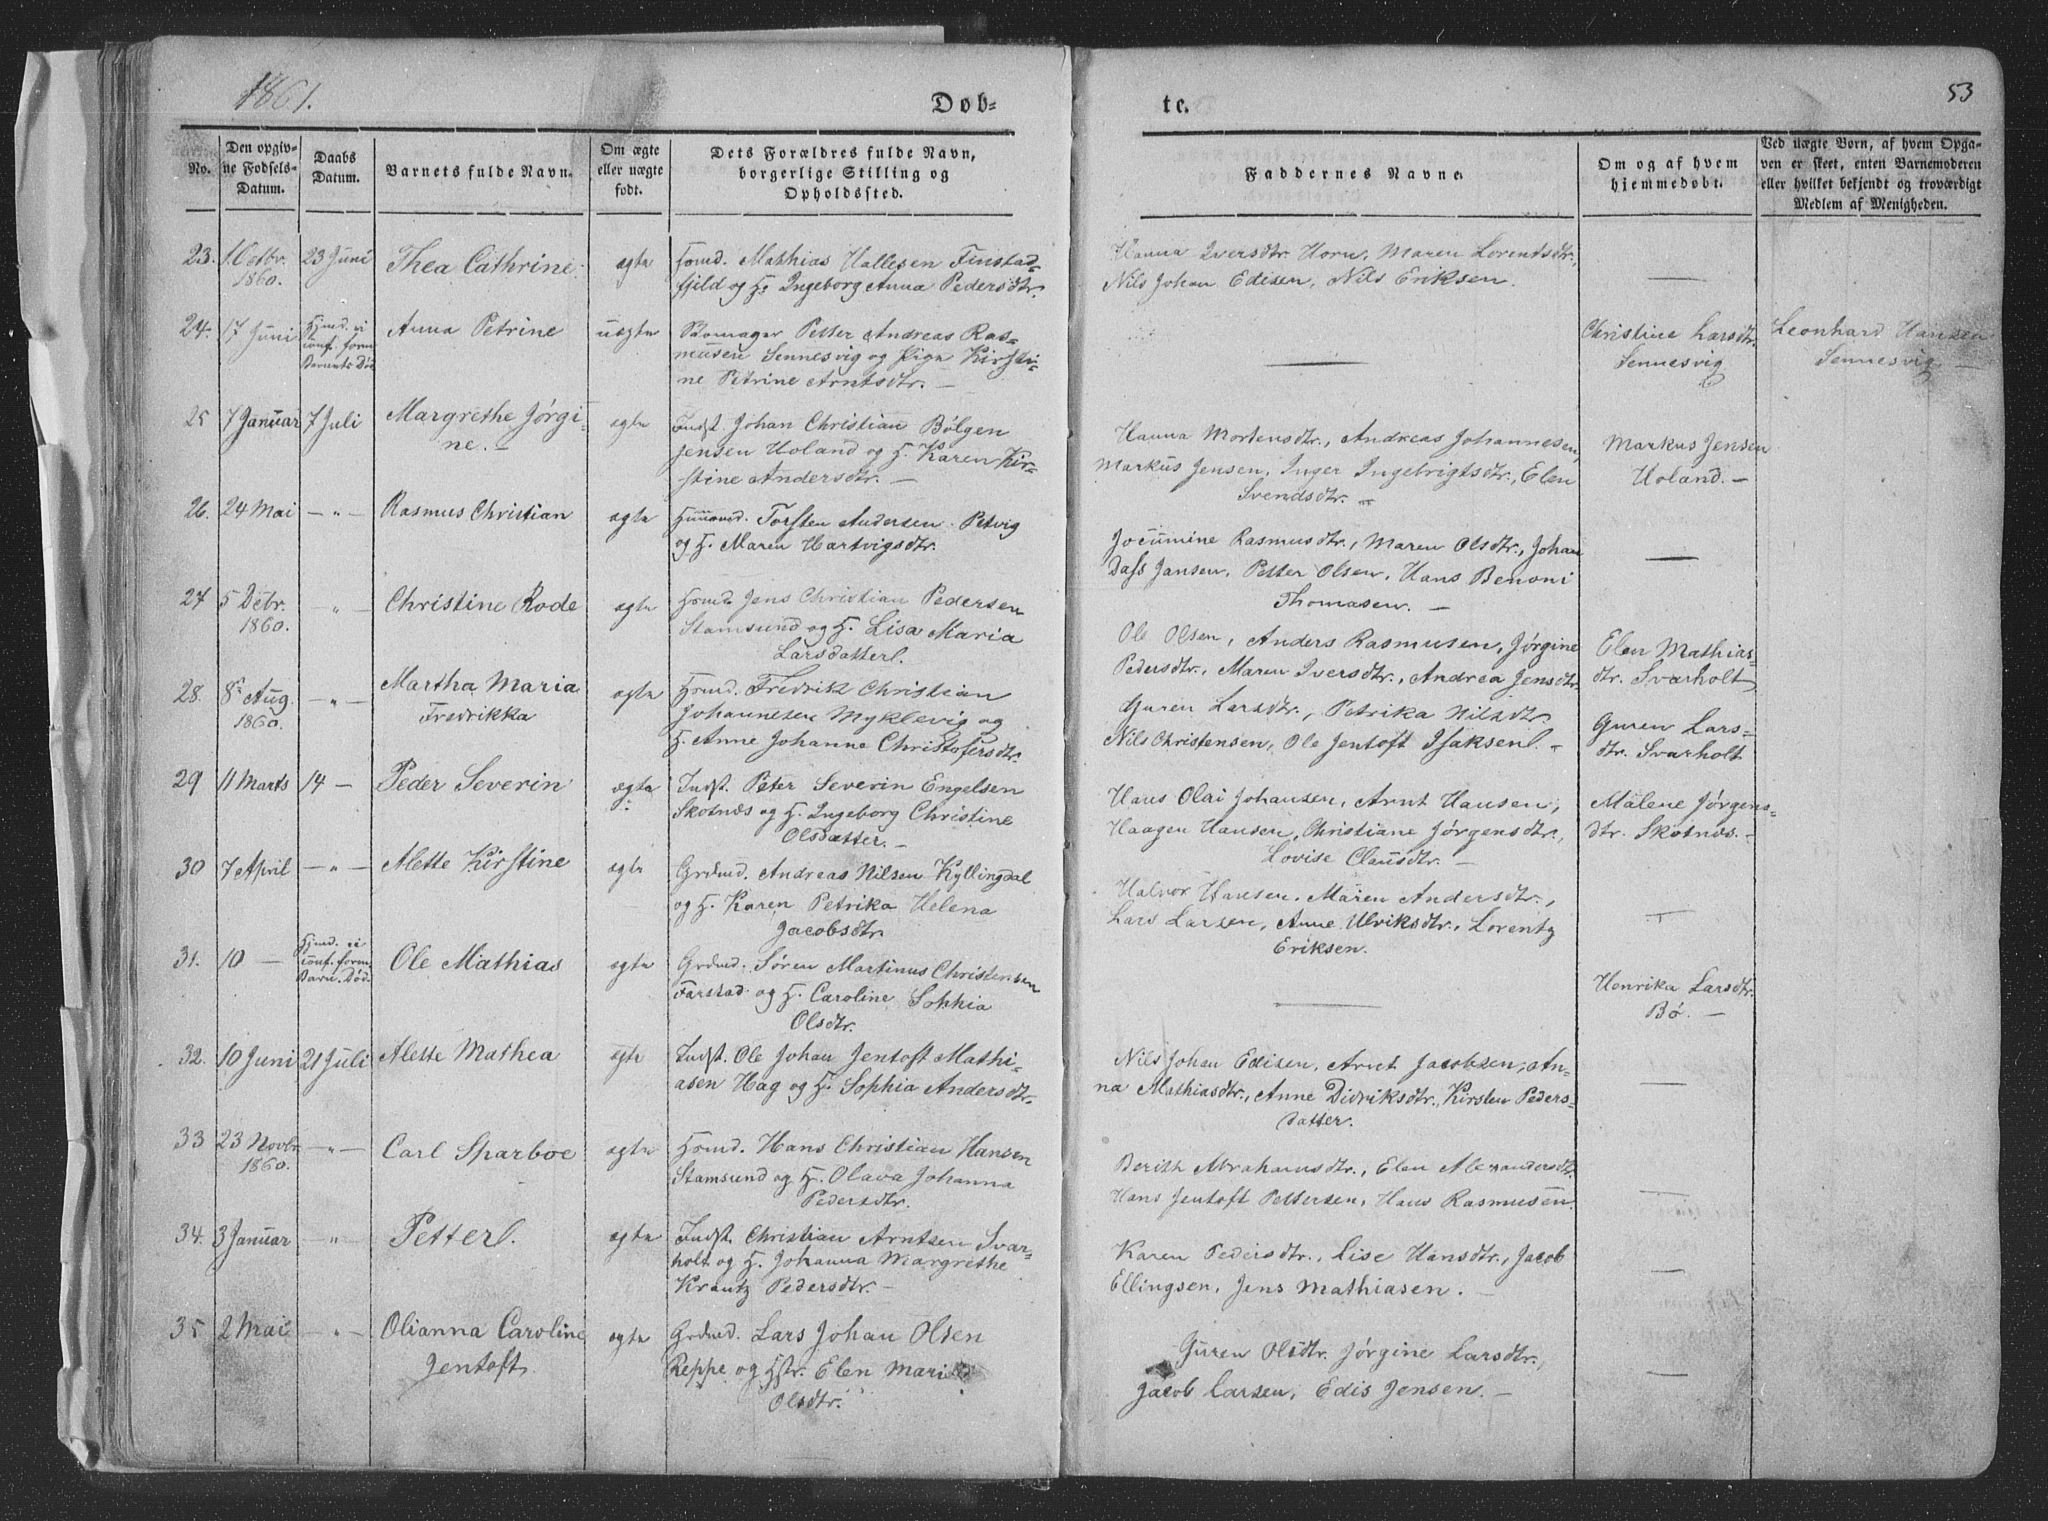 1861.
Døb-
te.
53
No.
Den opgiv-
ne Fødsels-
Datum.
Daabs
Datum.
Barnets fulde Navn.
Om ægte
eller uægte
født.
Dets Forældres fulde Navn,
borgerlige Stilling og
Opholdssted.
Faddernes Navne.
Om og af hvem
hjemmedøbt.
Ved uægte Børn, af hvem Opga-
ven er skeet, enten Barnemoderen
eller hvilket bekjendt og troværdigt
Medlem af Menigheden.
23. 1 Octbr. 23 Juni Thea Cathrine ægte Hmd. Mathias Hallesen Finstad-
1860. fjeld og H. Ingeborg Anna Pedersdtr.
Hanna Iversdtr. Horn, Maren Lorentsdtr., —
Nils Johan Edisen, Nils Eriksen.
24. 17 Juni Hjmd. ei Anna Petrine uægte Petter Andreas Ras-
conf. form musen Sennesvig og Pige Kirsti-
Barnets Død ne Petrine Arntsdtr. —
— Christine Larsdtr. Leonhard Hansen
Sennesvig Sennesvig —
25 7 Januar 7 Juli Margrethe Jørgi- ægte Indst. Johan Christian Bølgen
ne. — Jensen Holand og H. Karen Kir-
stine Andersdtr. —
Hanna Mortensdtr., Andreas Johannesen, Markus Jensen
Markus Jensen, Inger Ingebrigtsdtr., Elen Holand. —
Svendsdtr. —
26. 24 Mai — „ — Rasmus Christian ægte Torsten Andersen Petvig
og H. Maren Hartvigsdtr.
Jocumine Rasmusdtr., Maren Olsdtr., Johan —
Dass Jansen, Petter Olsen, Hans Benoni
Thomasen. —
27 5 Debr. — „ — Christine Rode ægte Hmd. Jens Christian Pedersen
1860. Stamsund og H. Lisa Maria
Larsdatter.
Ole Olsen, Anders Rasmusen, Jørgine Elen Mathias-
Pedersdtr., Maren Iversdtr., Andrea Jensdtr. dtr. Svarholt
28. 8 Aug. — „ — Martha Maria ægte Hmd. Fredrik Christian
1860. Fredrikka Johannesen Myklevig og
H. Anne Johanne Christofersdtr.
Guren Larsdtr., Petrika Nilsdtr. Guren Lars-
Nils Christensen, Ole Jentoft Isaksen. — dtr. Svarholt
29 11 Marts 14 — Peder Severin ægte Indst. Peter Severin Engelsen
Skotnæs og H. Ingeborg Christine
Olsdatter. —
Hans Olai Johansen, Arnt Hansen, Malene Jørgens-
Haagen Hansen, Christiane Jørgensdtr., dtr. Skotnæs. —
Lovise Clausdtr. —
30 7 April — „ — Alette Kirstine ægte Grdmd. Andreas Nilsen Kyllingdal
og H. Karen Petrika Helena
Jacobsdtr.
Halvor Hansen, Maren Andersdtr., —
Lars Larsen, Anne Ulriksdtr., Lorentz
Eriksen.
31. 10 — Hjmd. ei Ole Mathias ægte Grdmd. Søren Martinus Christensen
conf. form Farstad og H. Caroline Sophia
Barn. Død. Olsdtr.
— Henrika Larsdtr.
Bø. —
32. 10 Juni 21 Juli Alette Mathea ægte Indst. Ole Johan Jentoft Mathi-
asen Hag og H. Sophia Andersdtr.
Nils Johan Edisen, Arnt Jacobsen, An- —
na Mathiasdtr., Anne Didriksdtr., Kirsten Peders-
datter.
33 23 Novbr — „ — Carl Sparboe ægte Hmd. Hans Christian Hansen
1860. Stamsund og H. Olava Johanna
Pedersdtr.
Berith Abrahamsdtr., Elen Alexandersdtr. —
Hans Jentoft Pettersen, Hans Rasmusen.
34. 3 Januar — „ — Petter. ægte Indst. Christian Arntsen Svar-
holt og H. Johanna Margrethe
Krantz Pedersdtr. —
Karen Pedersdtr., Lise Hansdtr., Jacob —
Ellingsen, Jens Mathiasen. —
35 2 Mai — „ — Olianna Caroline ægte Grdmd. Lars Johan Olsen
Jentoft. Reppe og Hstr. Elen Maria
Olsdtr.
Guren Olsdtr. Jørgine Larsdtr., —
Jacob Larsen, Edis Jensen. —